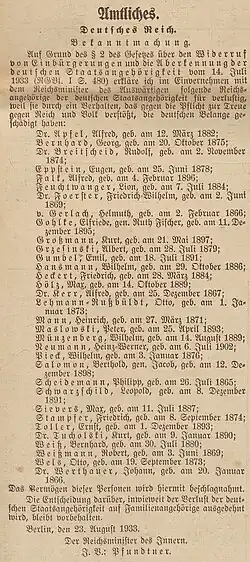 Amtliches.
Deutsches Reich.
Bekanntmachung.
Auf Grund des § 2 des Gesetzes über den Widerruf
von Einbürgerungen und die Aberkennung der
deutschen Staatsangehörigkeit vom 14. Juli
1933 (RGBl. I S. 480) erkläre ich im Einvernehmen mit
dem Reichsminister des Auswärtigen folgende Reichs-
angehörige der deutschen Staatsangehörigkeit für verlustig,
weil sie durch ein Verhalten, das gegen die Pflicht zur Treue
gegen Reich und Volk verstößt, die deutschen Belange ge-
schädigt haben:
Dr. Apfel, Alfred, geb. am 12. März 1882;
Bernhard, Georg, geb. am 20. Oktober 1875;
Dr. Breitscheid, Rudolf, geb. am 2. November
1874;
Eppstein, Eugen, geb. am 25. Juni 1878;
Falk, Alfred, geb. am 4. Februar 1896;
Feuchtwanger, Lion, geb. am 7. Juli 1884;
Dr. Foerster, Friedrich-Wilhelm, geb. am 2. Juni
1869;
v. Gerlach, Helmuth, geb. am 2. Februar 1866;
Gohlke, Elfriede, gen. Ruth Fischer, geb. am 11. De-
zember 1895;
Großmann, Kurt, geb. am 21. Mai 1897;
Grzesinski, Albert, geb. am 28. Juli 1879;
Gumbel, Emil, geb. am 18. Juli 1891;
Hansmann, Wilhelm, geb. am 29. Oktober 1886;
Heckert, Friedrich, geb. am 28. März 1884;
Hölz, Max, geb. am 14. Oktober 1889;
Dr. Kerr, Alfred, geb. am 25. Dezember 1867;
Lehmann-Rußbüldt, Otto, geb. am 1. Ja-
nuar 1873;
Mann, Heinrich, geb. am 27. März 1871;
Maslowski, Peter, geb. am 25. April 1893;
Münzenberg, Wilhelm, geb. am 14. August 1889;
Neumann, Heinz-Werner, geb. am 6. Juli 1902;
Pieck, Wilhelm, geb. am 3. Januar 1876;
Salomon, Berthold, gen. Jacob, geb. am 12. De-
zember 1898;
Scheidemann, Philipp, geb. am 26. Juli 1865;
Schwarzschild, Leopold, geb. am 8. Dezember
1891;
Sievers, Max, geb. am 11. Juli 1887;
Stampfer, Friedrich, geb. am 8. September 1874;
Toller, Ernst, geb. am 1. Dezember 1893;
Dr. Tucholski, Kurt, geb. am 9. Januar 1890;
Weiß, Bernhard, geb. am 30. Juli 1880;
Weißmann, Robert, geb. am 3. Juni 1869;
Wels, Otto, geb. am 19. September 1873;
Dr. Werthauer, Johann, geb. am 20. Januar
1866.
Das Vermögen dieser Personen wird hiermit beschlagnahmt.
Die Entscheidung darüber, inwieweit der Verlust der deut-
schen Staatsangehörigkeit auf Familienangehörige ausgedehnt
wird, bleibt vorbehalten.
Berlin, den 23. August 1933.
Der Reichsminister des Innern.
J. V.: Pfundtner.